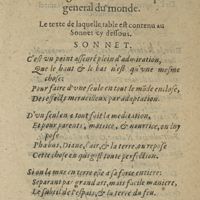 general du monde.
Le texte de laquelle table est contenu au
Sonnet cy dessouz.
SONNET.
C'est un point asseuré plein d'admiration,
Que le haut & le bas n'est qu'une mesme
chose:
Pour faire d'une seule en tout le monde enclose,
Des effects merveilleux par adaptation.
D'un seul en a tout fait la meditation,
Et pour parents, matrice, & nourrice, on luy
pose
Phœbus, Diane, l'air, & la terre ou repose
Cette chose en qui gist toute perfection.
Si on la mue en terre elle a sa force entiere:
Separant par grand art, mais facile maniere,
Le subtil de l'espais, & la terre du feu.